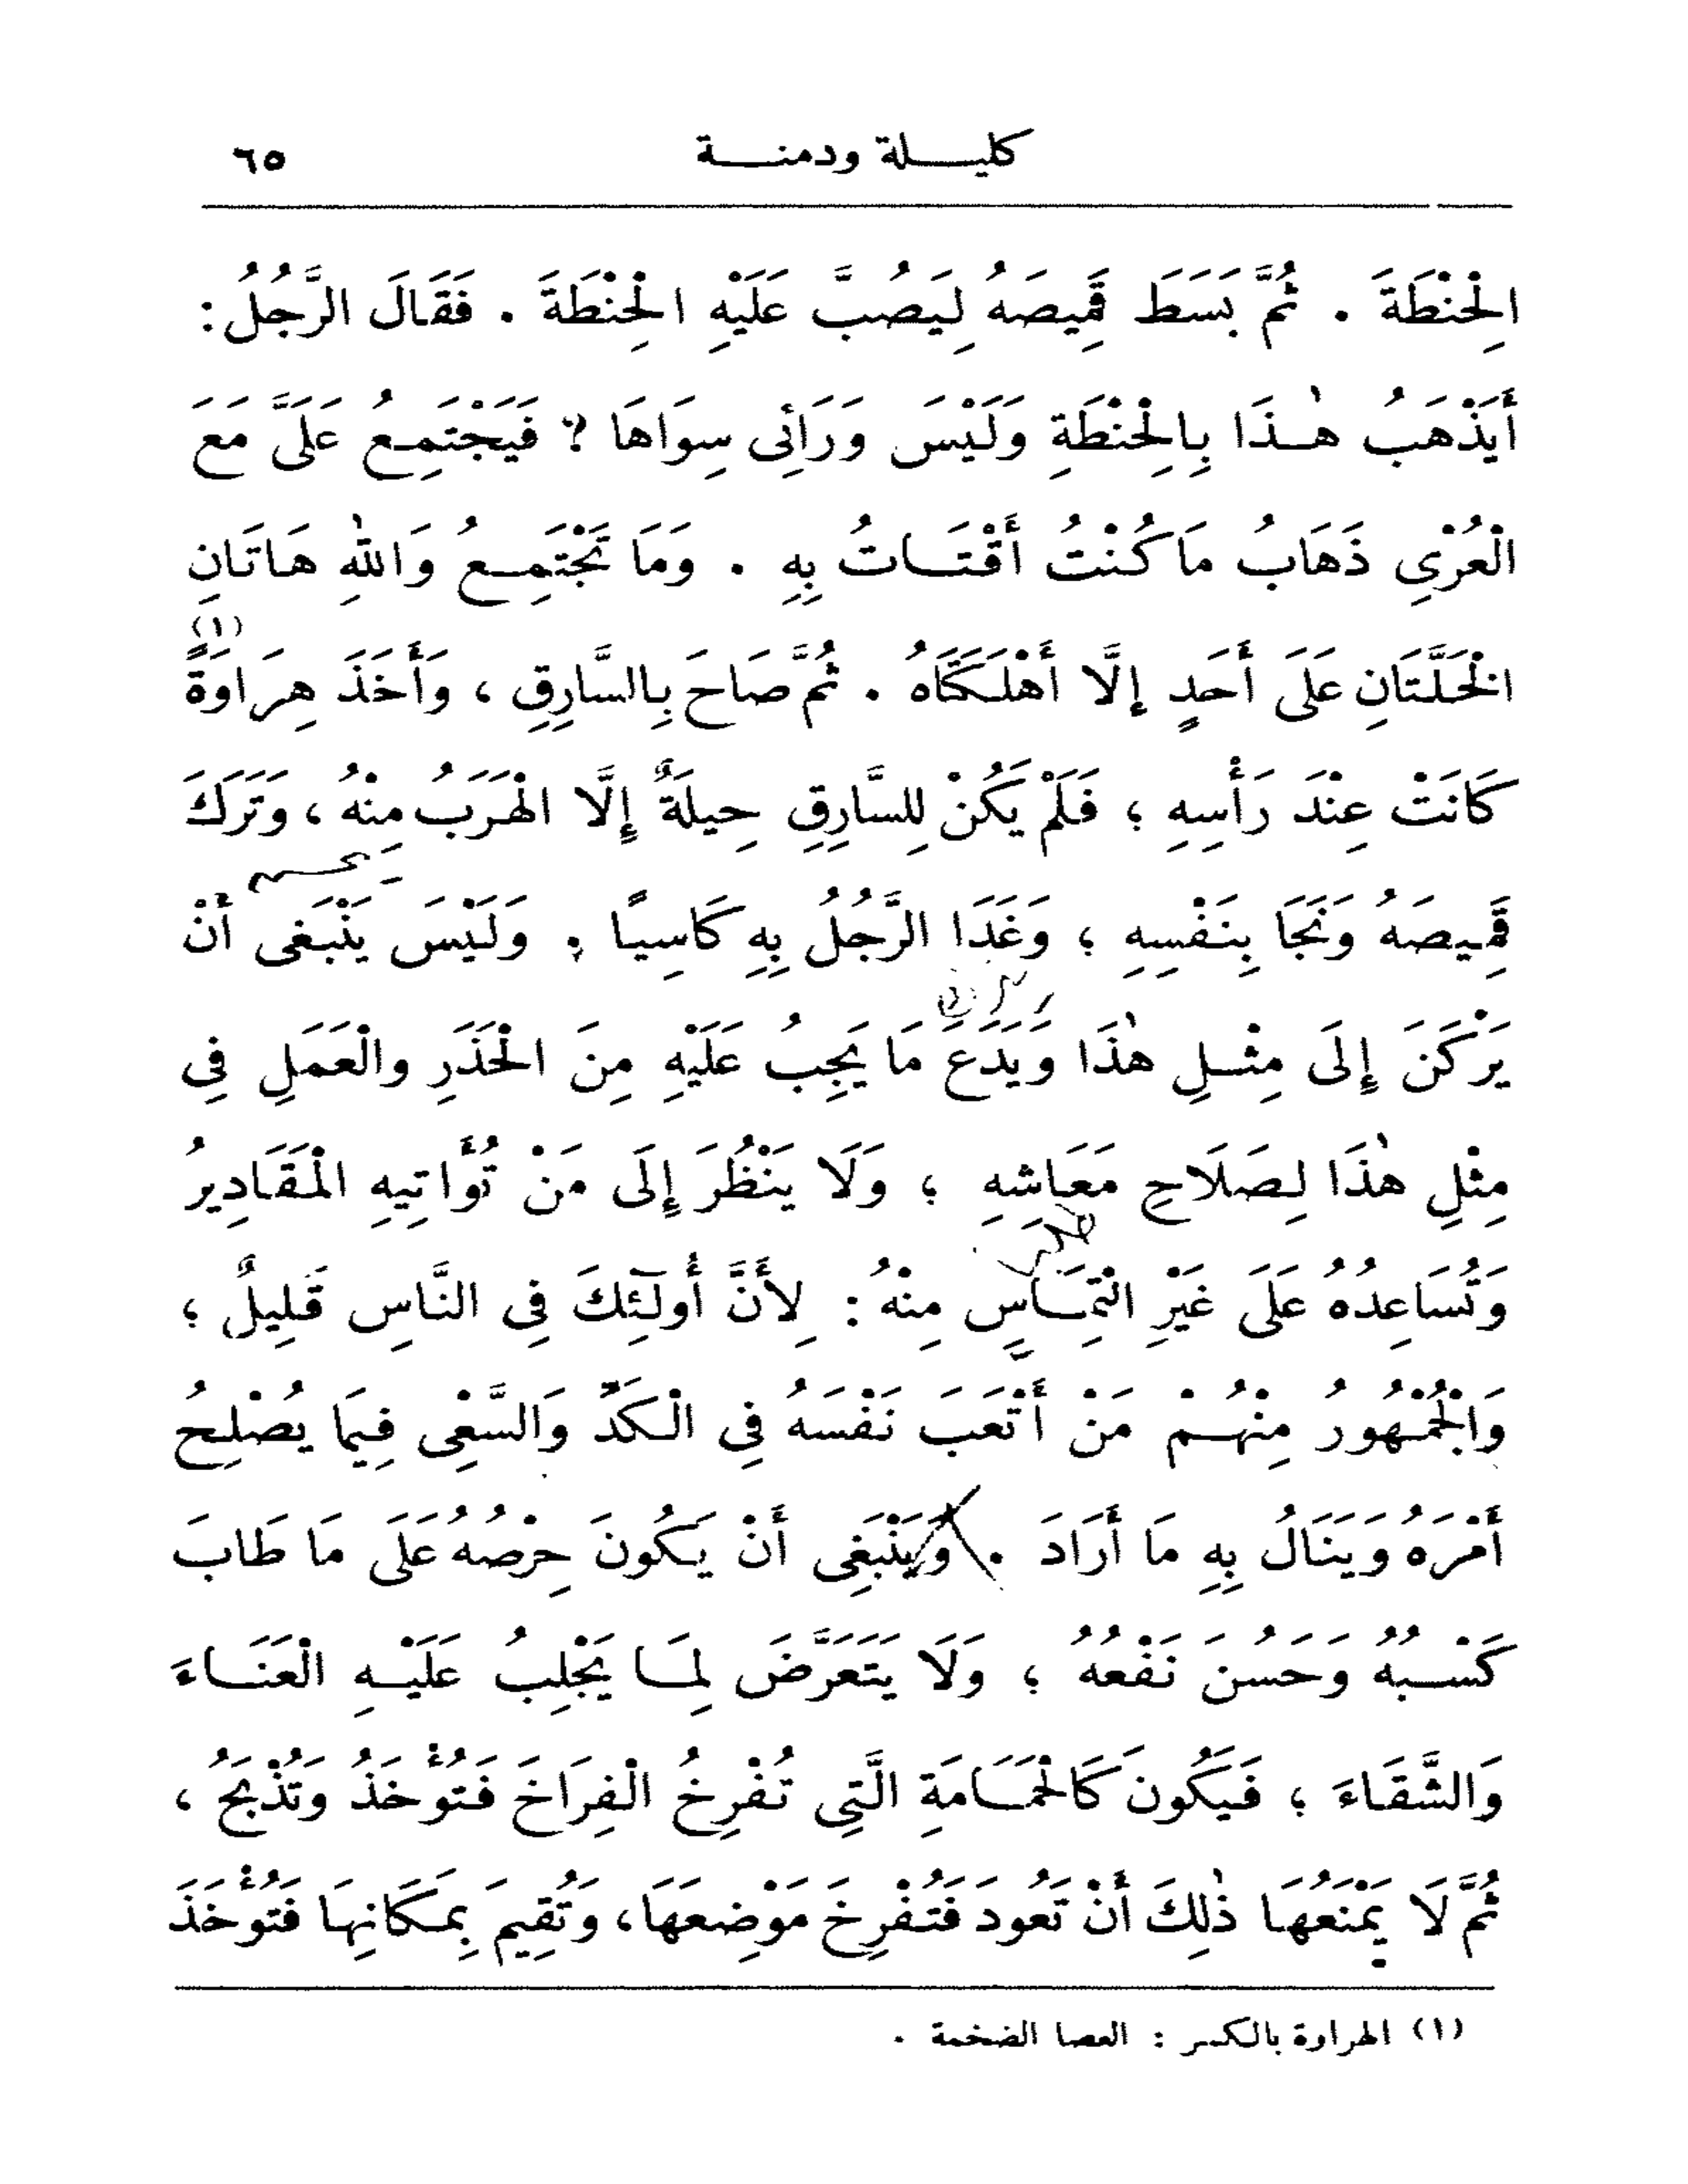 كليلة ودمنة ٦٥
الْحِنْطَةَ . ثُمَّ بَسَطَ قَمِيصَهُ لِيَصُبَّ عَلَيْهِ الْحِنْطَةَ . فَقَالَ الرَّجُلُ:
أَيَذْهَبُ هٰذَا بِالْحِنْطَةِ وَلَيْسَ وَرَائِى سِوَاهَا ؟ فَيَجْتَمِعُ عَلَىَّ مَعَ
الْعُرْىِ ذَهَابُ مَا كُنْتُ أَقْتَاتُ بِهِ . وَمَا تَجْتَمِعُ وَاللهِ هَاتَانِ
الْخَلَّتَانِ عَلَى أَحَدٍ إِلَّا أَهْلَكَتَاهُ . ثُمَّ صَاحَ بِالسَّارِقِ ، وَأَخَذَ هِرَاوَةً (١)
كَانَتْ عِنْدَ رَأْسِهِ ؛ فَلَمْ يَكُنْ لِلسَّارِقِ حِيلَةٌ إِلَّا الْهَرَبُ مِنْهُ ، وَتَرَكَ
قَمِيصَهُ وَنَجَا بِنَفْسِهِ ؛ وَغَدَا الرَّجُلُ بِهِ كَاسِيًا . وَلَيْسَ يَنْبَغِى أَنْ
يَرْكَنَ إِلَى مِثْلِ هٰذَا وَيَدَعَ مَا يَجِبُ عَلَيْهِ مِنَ الْحَذَرِ والْعَمَلِ فِى
مِثْلِ هٰذَا لِصَلَاحِ مَعَاشِهِ ؛ وَلَا يَنْظُرَ إِلَى مَنْ تُؤَاتِيهِ الْمَقَادِيرُ
وَتُسَاعِدُهُ عَلَى غَيْرِ الْتِمَاسٍ مِنْهُ : لِأَنَّ أُولَٓئِكَ فِى النَّاسِ قَلِيلٌ ؛
وَالْجُمْهُورُ مِنْهُمْ مَنْ أَتْعَبَ نَفْسَهُ فِى الْكَدِّ وَالسَّعْىِ فِيمَا يُصْلِحُ
أَمْرَهُ وَيَنَالُ بِهِ مَا أَرَادَ . وَيَنْبَغِى أَنْ يَكُونَ حِرْصُهُ عَلَى مَا طَابَ
كَسْبُهُ وَحَسُنَ نَفْعُهُ ؛ وَلَا يَتَعَرَّضَ لِمَا يَجْلِبُ عَلَيْهِ الْعَنَاءَ
وَالشَّقَاءَ ؛ فَيَكُونَ كَالْحَمَامَةِ الَّتِى تُفْرِخُ الْفِرَاخَ فَتُؤْخَذُ وَتُذْبَحُ ،
ثُمَّ لَا يَمْنَعُهَا ذٰلِكَ أَنْ تَعُودَ فَتُفْرِخَ مَوْضِعَهَا، وَتُقِيمَ بِمَكَانِهَا فَتُؤْخَذَ
(١) الهراوة بالكسر : العصا الضخمة .